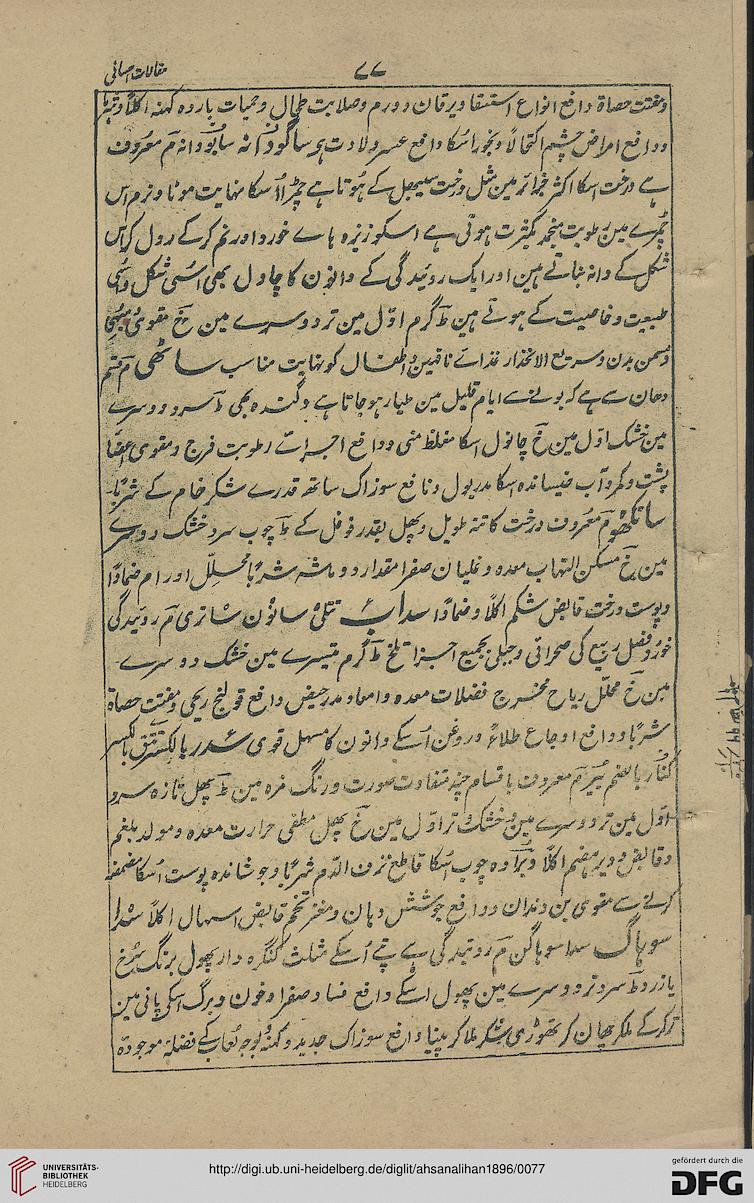 مقالات احسانی
۷۷
ومفتت حصاة دافع انواع استسقا ویرقان وورم وصلابت طحال وحمیات باردہ کہنہ اکلاً وشربا
ودافع امراض چشم اکتحالاً وبخور اسکا دافع عسر ولادت ہر ساگودانہ سابودانہ م معروف
ہے درخت اسکا اکثر جزائر مین مثل درخت کے ہوتا ہے چمڑا اُسکا نہایت موٹا ونرم اس
چمڑے مین رطوبت منجمد بکثرت ہوتی ہے اسکو ریزہ ہاے خورد اور نم کرکے رول کر اس
شکل کے دانہ بناتے ہین اور ایک روئیدگی کے دانون کا چاول بھی اسی شکل واسی
طبیعت وخاصیت کے ہوتے ہین ط گرم اوّل مین تر دوسرے مین خ مقوی
ومسمن بدن وسریع الانحدار غذاے ناقہین واطفال کو نہایت مناسب ساٹھی م قسم
دھان سے ہے کہ بونے سے ایام قلیل مین طیار ہوجاتا ہے وگندہ بھی ط سرد دوسرے
مین خشک اوّل مین خ چانول اسکا مغلظ منی ودافع رطوبت فرج ومقوی اعضا
پشت وکمر وآب خیساندہ اسکا مدر بول ونافع سوزاک ساتھ قدرے شکر خام کے شربًا
م معروف درخت کا تنہ طویل وپھل بقدر فوفل کے ط چوب سرد خشک دوسرے
مین خ مسکن التہاب معدہ وغلیان صفرا مقدار دو ماشہ شربًا محلل اورام ضمادًا
وپوست درخت قابض شکم اکلاً وضمادًا سداب تتلی م روئیدگی
خورد فصل ربیع کی صحرائی وجبلی بجمیع اجزا تلخ ط گرم تیسرے مین خشک دوسرے
مین خ محلل ریاح مخرج فضلات معدہ وامعا ومدر حیض دافع قولنج ریحی ومفتت حصاة
شربًا ودافع اوجاع طلاءً وروغن اُسکے دانون کا مسہل قوی سدر بالکسر نبق بالکسر
کُنار بالضم بیر م معروف باقسام چند متفاوت صورت ورنگ مزہ مین ط پھل تازہ سرد
اوّل مین تر دوسرے مین وخشک تر اوّل مین خ پھل مطفی حرارت معدہ ومولد بلغم
وقابض ودیر ہضم اکلاً وبُرادہ چوب اسکا قاطع نزف الدّم شربًا وجوشاندہ پوست اُسکا مضمضہ
کرنے سے مقوی بن دندان ودافع جوشش دہان ومغز تخم قابض اسہال اکلاً
سوہاگ سدا سوہاگن م روئیدگی ہے پتے اُسکے مثلث کنگرہ دار پھول برنگ سُرخ
یا زرد ط سرد تر دوسرے مین پھول اسکے دافع فساد صفرا وخون وبرگ اسکی پانی مین
تر کرکے ملکر چھان کر تھوڑی شکر ملا کر پینا دافع سوزاک جدید وکہنہ بوجہ لعاب کے فضلہ موجودہ
UNIVERSITÄTS-
BIBLIOTHEK
HEIDELBERG
http://digi.ub.uni-heidelberg.de/diglit/ahsanalihan1896/0077
gefördert durch die
DFG